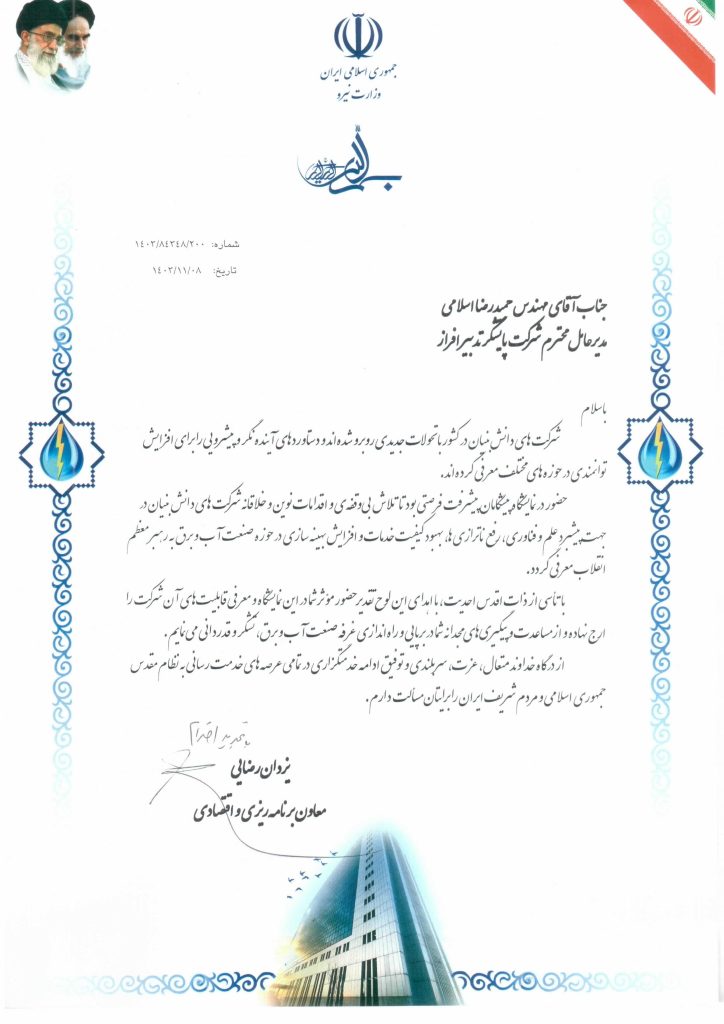 جمهوری اسلامی ایران
وزارت نیرو
شماره: ١٤٠٣/٨٤٣٤٨/٢٠٠
تاریخ: ١٤٠٣/١١/٠٨
جناب آقای مهندس حمیدرضا اسلامی
مدیرعامل محترم شرکت پایشگر تدبیر افراز
باسلام
شرکت های دانش بنیان در کشور با تحولات جدیدی روبرو شده اند و دستاوردهای آینده نگر و پیشرویی را برای افزایش
توانمندی در حوزه های مختلف معرفی کرده اند.
حضور در نمایشگاه پیشگامان پیشرفت فرصتی بود تا تلاش بی وقفه ی و اقدامات نوین و خلاقانه شرکت های دانش بنیان در
جهت پیشبرد علم و فناوری، رفع ناترازی ها، بهبود کیفیت خدمات و افزایش بهینه سازی در حوزه صنعت آب و برق به رهبر معظم
انقلاب معرفی گردد.
با تأسی از ذات اقدس احدیت، با اهدای این لوح تقدیر حضور مؤثر شما در این نمایشگاه و معرفی قابلیت های آن شرکت را
ارج نهاده و از مساعدت و پیگیری های مجدانه شما در برپایی و راه اندازی غرفه صنعت آب و برق، تشکر و قدردانی می نمایم.
از درگاه خداوند متعال، عزت، سربلندی و توفیق ادامه خدمتگزاری در تمامی عرصه های خدمت رسانی به نظام مقدس
جمهوری اسلامی و مردم شریف ایران را برایتان مسألت دارم.
با تجدید احترام
یزدان رضایی
معاون برنامه ریزی و اقتصادی